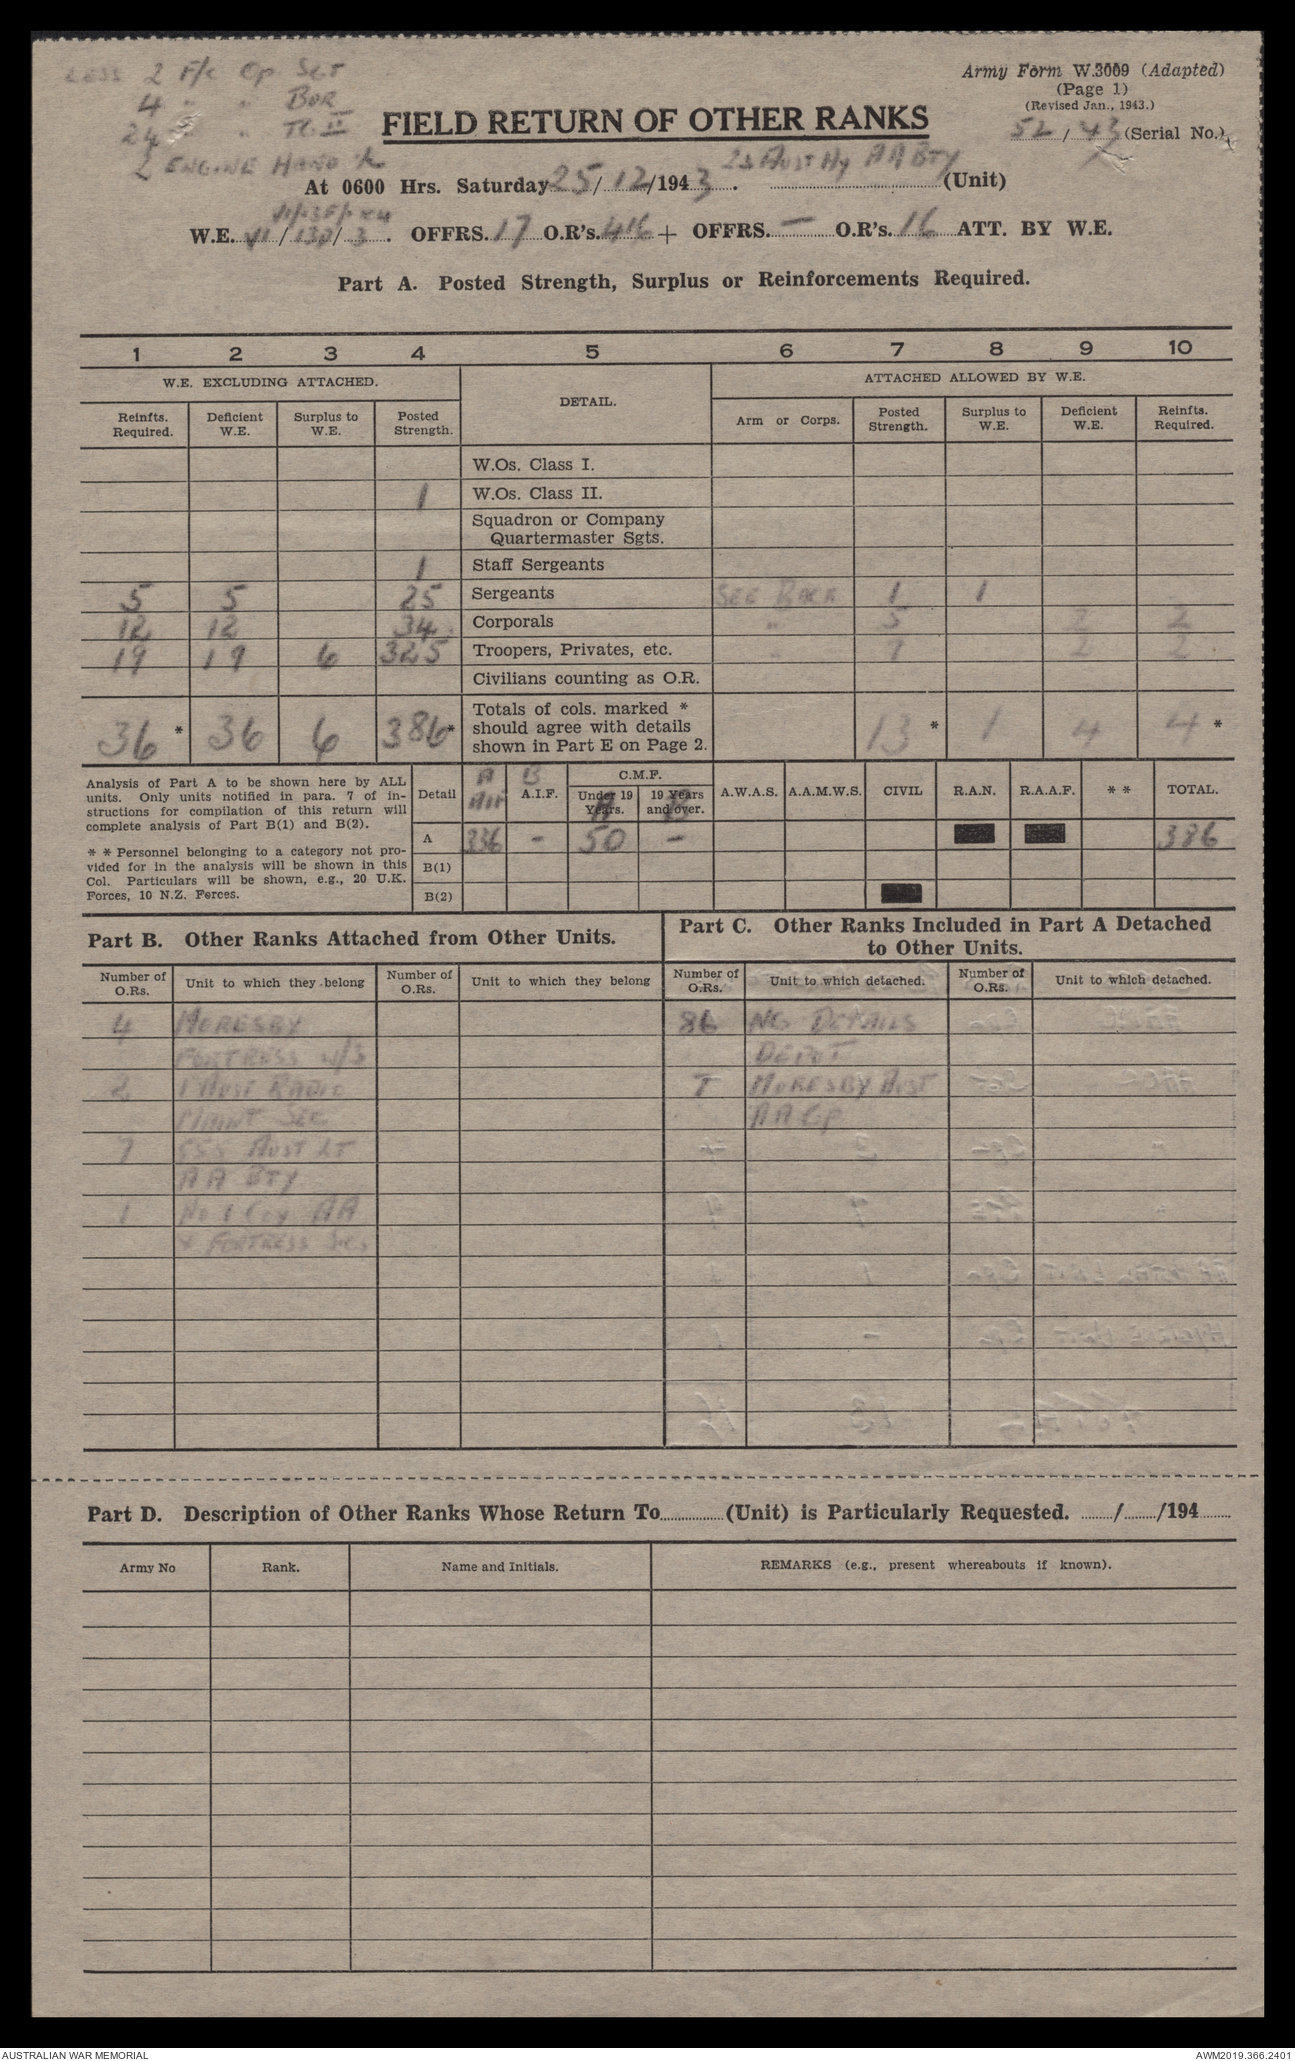 Less 2 F/c Op Sgt
4 " " Bdr
24 " " Tr. II
2 ENGINE HAND
Army Form W.3009 (Adapted)
(Page 1)
(Revised Jan., 1943.)
52/43 (Serial No.)
FIELD RETURN OF OTHER RANKS
23 Aust Hy AA Bty
At 0600 Hrs. Saturday 25/12/1943. (Unit)
W.E. VI/13D/3. OFFRS. 17 O.R's. 416 + OFFRS. — O.R's. 16 ATT. BY W.E.
Part A. Posted Strength, Surplus or Reinforcements Required.
1 2 3 4 5 6 7 8 9 10
W.E. EXCLUDING ATTACHED. DETAIL. ATTACHED ALLOWED BY W.E.
Reinfts. Required. Deficient W.E. Surplus to W.E. Posted Strength. Arm or Corps. Posted Strength. Surplus to W.E. Deficient W.E. Reinfts. Required.
W.Os. Class I.
1 W.Os. Class II.
Squadron or Company
Quartermaster Sgts.
1 Staff Sergeants
5 5 25 Sergeants SEE BACK 1 1
12 12 34 Corporals " 5 2 2
19 19 6 325 Troopers, Privates, etc. " 7 2 2
Civilians counting as O.R.
36 * 36 6 386 * Totals of cols. marked * should agree with details shown in Part E on Page 2. 13 * 1 4 4 *
Analysis of Part A to be shown here by ALL
units. Only units notified in para. 7 of in-
structions for compilation of this return will
complete analysis of Part B(1) and B(2).
* * Personnel belonging to a category not pro-
vided for in the analysis will be shown in this
Col. Particulars will be shown, e.g., 20 U.K.
Forces, 10 N.Z. Forces.
Detail A AIF B A.I.F. C.M.F. Under 19 Years. A 19 Years and over. B A.W.A.S. A.A.M.W.S. CIVIL R.A.N. R.A.A.F. * * TOTAL.
A 336 - 50 - 386
B(1)
B(2)
Part B. Other Ranks Attached from Other Units.
Part C. Other Ranks Included in Part A Detached
to Other Units.
Number of O.Rs. Unit to which they belong Number of O.Rs. Unit to which they belong Number of O.Rs. Unit to which detached. Number of O.Rs. Unit to which detached.
4 MORESBY 86 NG DETAILS
FORTRESS W/S DEPOT
2 1 AUST RADIO 7 MORESBY AUST
MAINT SEC AA GP
7 553 AUST LT
AA BTY
1 No 1 Coy AA
& FORTRESS SIGS
Part D. Description of Other Ranks Whose Return To (Unit) is Particularly Requested. / /194
Army No Rank. Name and Initials. REMARKS (e.g., present whereabouts if known).
AUSTRALIAN WAR MEMORIAL
AWM2019.366.2401